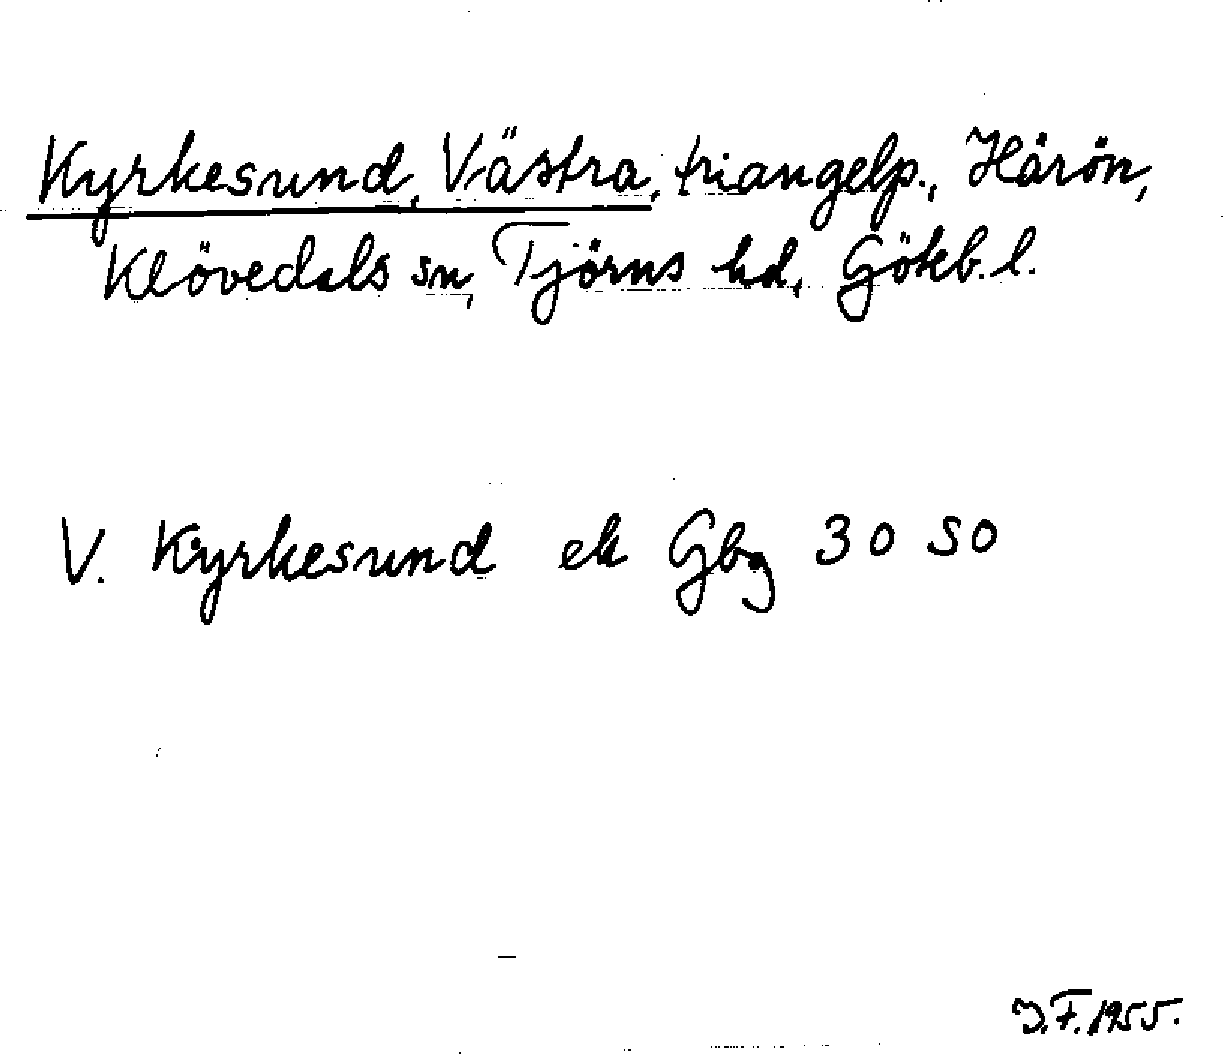 Kyrkesund, Västra, triangelp., Härön,
Klövedals sn, Tjörns hd, Göteb. l.
V. Kyrkesund ek Gbg 30 SO
J.F. 1955.